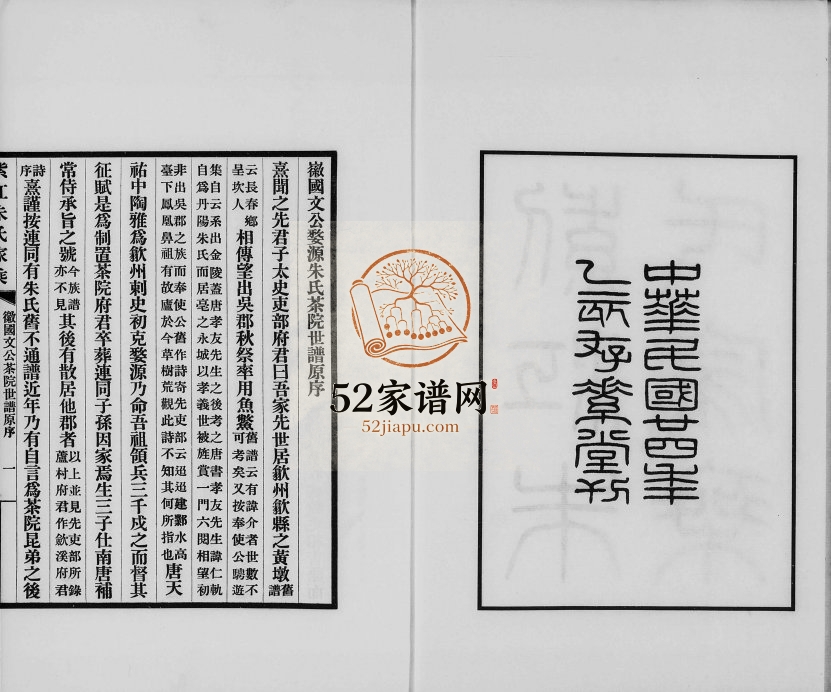 中華民國廿四年
乙亥存素堂刊
徽國文公婺源朱氏茶院世譜原序
熹聞之先君子太史吏部府君曰吾家先世居歙州歙縣之黄墩舊譜
云長春鄉呈坎人相傳望出吳郡秋祭率用魚鱉舊譜云有諱介者世數不可考矣又按奉使公聘遊
集自云系出金陵蓋唐孝友先生之後考之唐書孝友先生諱仁軌
自爲丹陽朱氏而居亳之永城以孝義世被旌賞一門六闕相望初
非出吳郡之族而奉使公舊作詩寄先吏部云迢迢建鄴水高
臺下鳳凰鼻祖有故廬於今草樹荒觀此詩不知其何所指也唐天
祐中陶雅爲歙州刺史初克婺源乃命吾祖領兵三千戍之而督其
征賦是爲制置茶院府君卒葬連同子孫因家焉生三子仕南唐補
常侍承旨之號今族譜亦不見其後有散居他郡者以上並見先吏部所錄蘆村府君作歙溪府君
詩序熹謹按連同有朱氏舊不通譜近年乃有自言爲茶院昆弟之後
紫江朱氏家乘
徽國文公茶院世譜原序
一
52家谱网
52jiapu.com